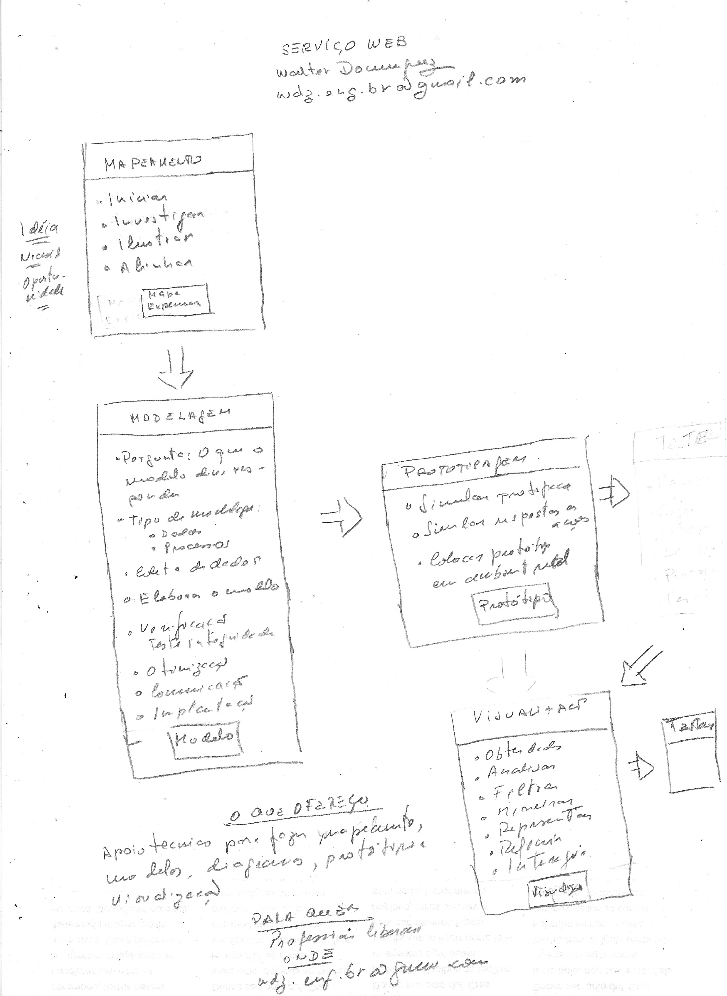 SERVIÇO WEB
Walter Dominguez
wdz.eng.br@gmail.com
MAPEAMENTO
• Iniciar
• Investigar
• Ilustrar
• Alinhar
Mapa
Idéia
Oportu-
nidade
MODELAGEM
• Pergunta: O que o
modelo deve res-
ponder
• Tipo de modelagem:
• Dados
• Processos
• Coleta de dados
• Elaborar o modelo
• Verificação
Teste integridade
• Otimização
• Comunicação
• Implantação
Modelo
PROTOTIPAGEM
• Simular protótipo
• Simular respostas as
ações
• Colocar protótipo
em
Protótipo
TESTE
VISUALIZAÇ
• Obter dados
• Analisar
• Filtrar
• Minerar
• Representar
• Refinar
• Interagir
O QUE OFEREÇO
Apoio técnico para fazer mapeamento,
modelos, diagramas, protótipos e
visualização
PARA QUEM
Profissionais liberais
ONDE
wdz.eng.br@gmail.com